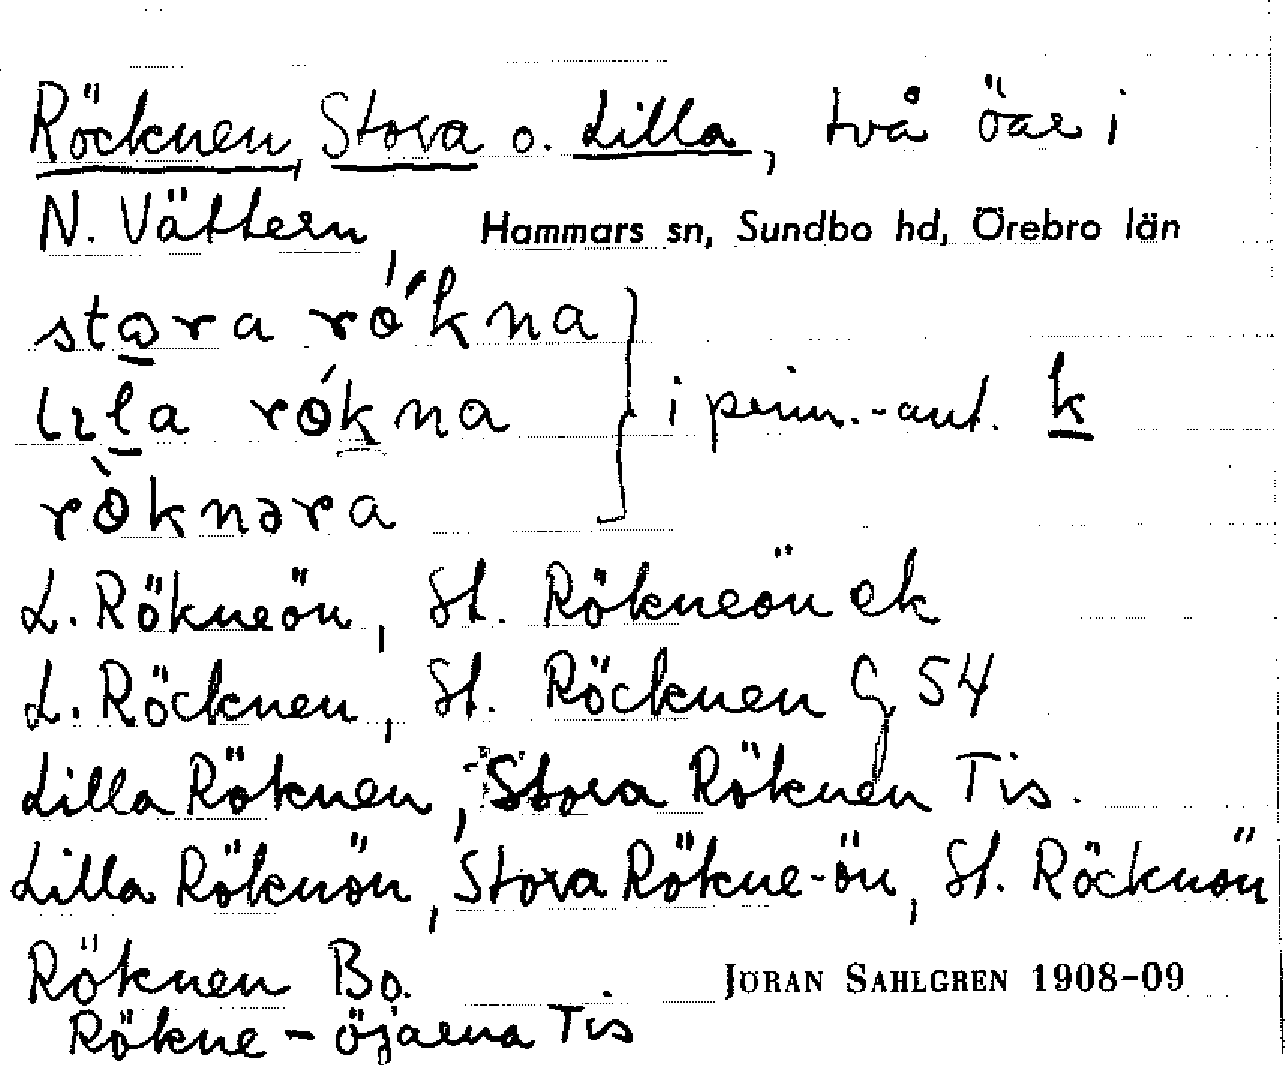 Röcknen, Stora o. Lilla, två öar i
N. Vättern, Hammars sn, Sundbo hd, Örebro län
stɷra rö́kna
lɩla rö́kna } i penn.-ant. k
rö̀knəra
L. Rökneön, St. Rökneön ek
L. Röcknen, St. Röcknen G 54
Lilla Röknen, Stora Röknen Tis.
Lilla Röknön, Stora Rökne-ön, St. Röcknön
Röknen Bo. JÖRAN SAHLGREN 1908-09
Rökne-öjarna Tis